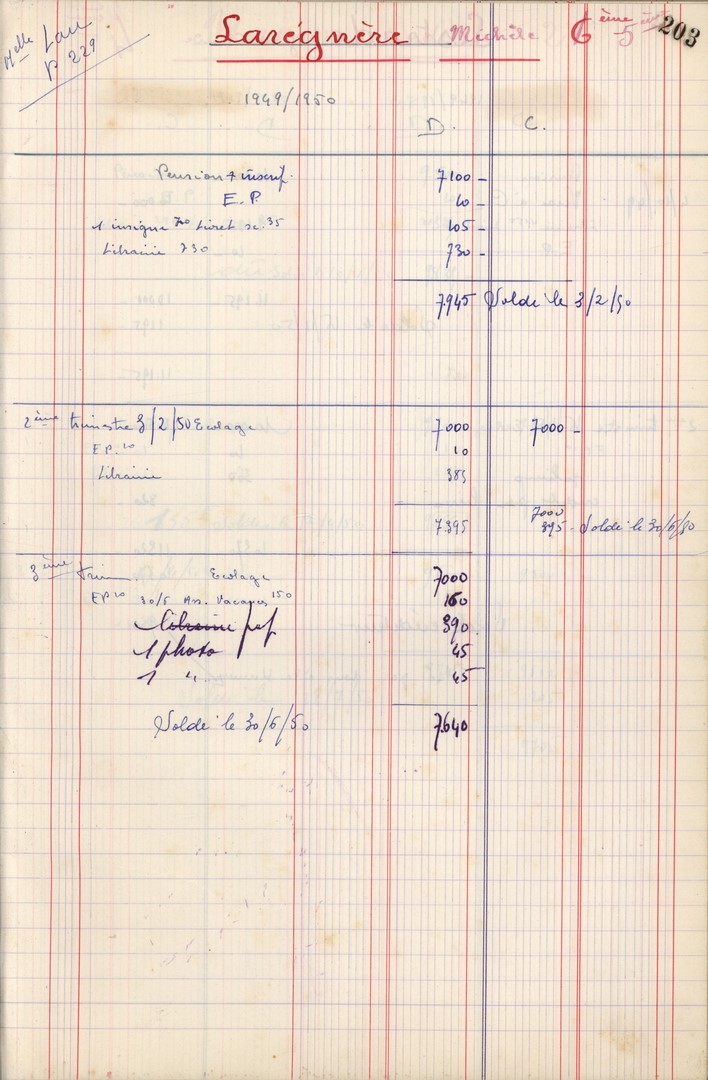 Melle Lau
p 229
Larégnère Michèle 6ème 5ème 203
1949/1950
D. C.
Pension + inscrip. 7100 -
E.P. 10 -
1 insigne 70 Livret sc. 35 105 -
Librairie 730 730 -
7945 Soldé le 3/2/50
2ème trimestre 3/2/50 Ecolage 7000 7000 -
EP. 10 10
Librairie 385
7000
7395 395 - Soldé le 30/6/50
3ème trim. Ecolage 7000
EP 10 30/5 Ass. Vacances 150 160
Librairie 390
1 photo 45
1 " 45
Soldé le 30/6/50 7640